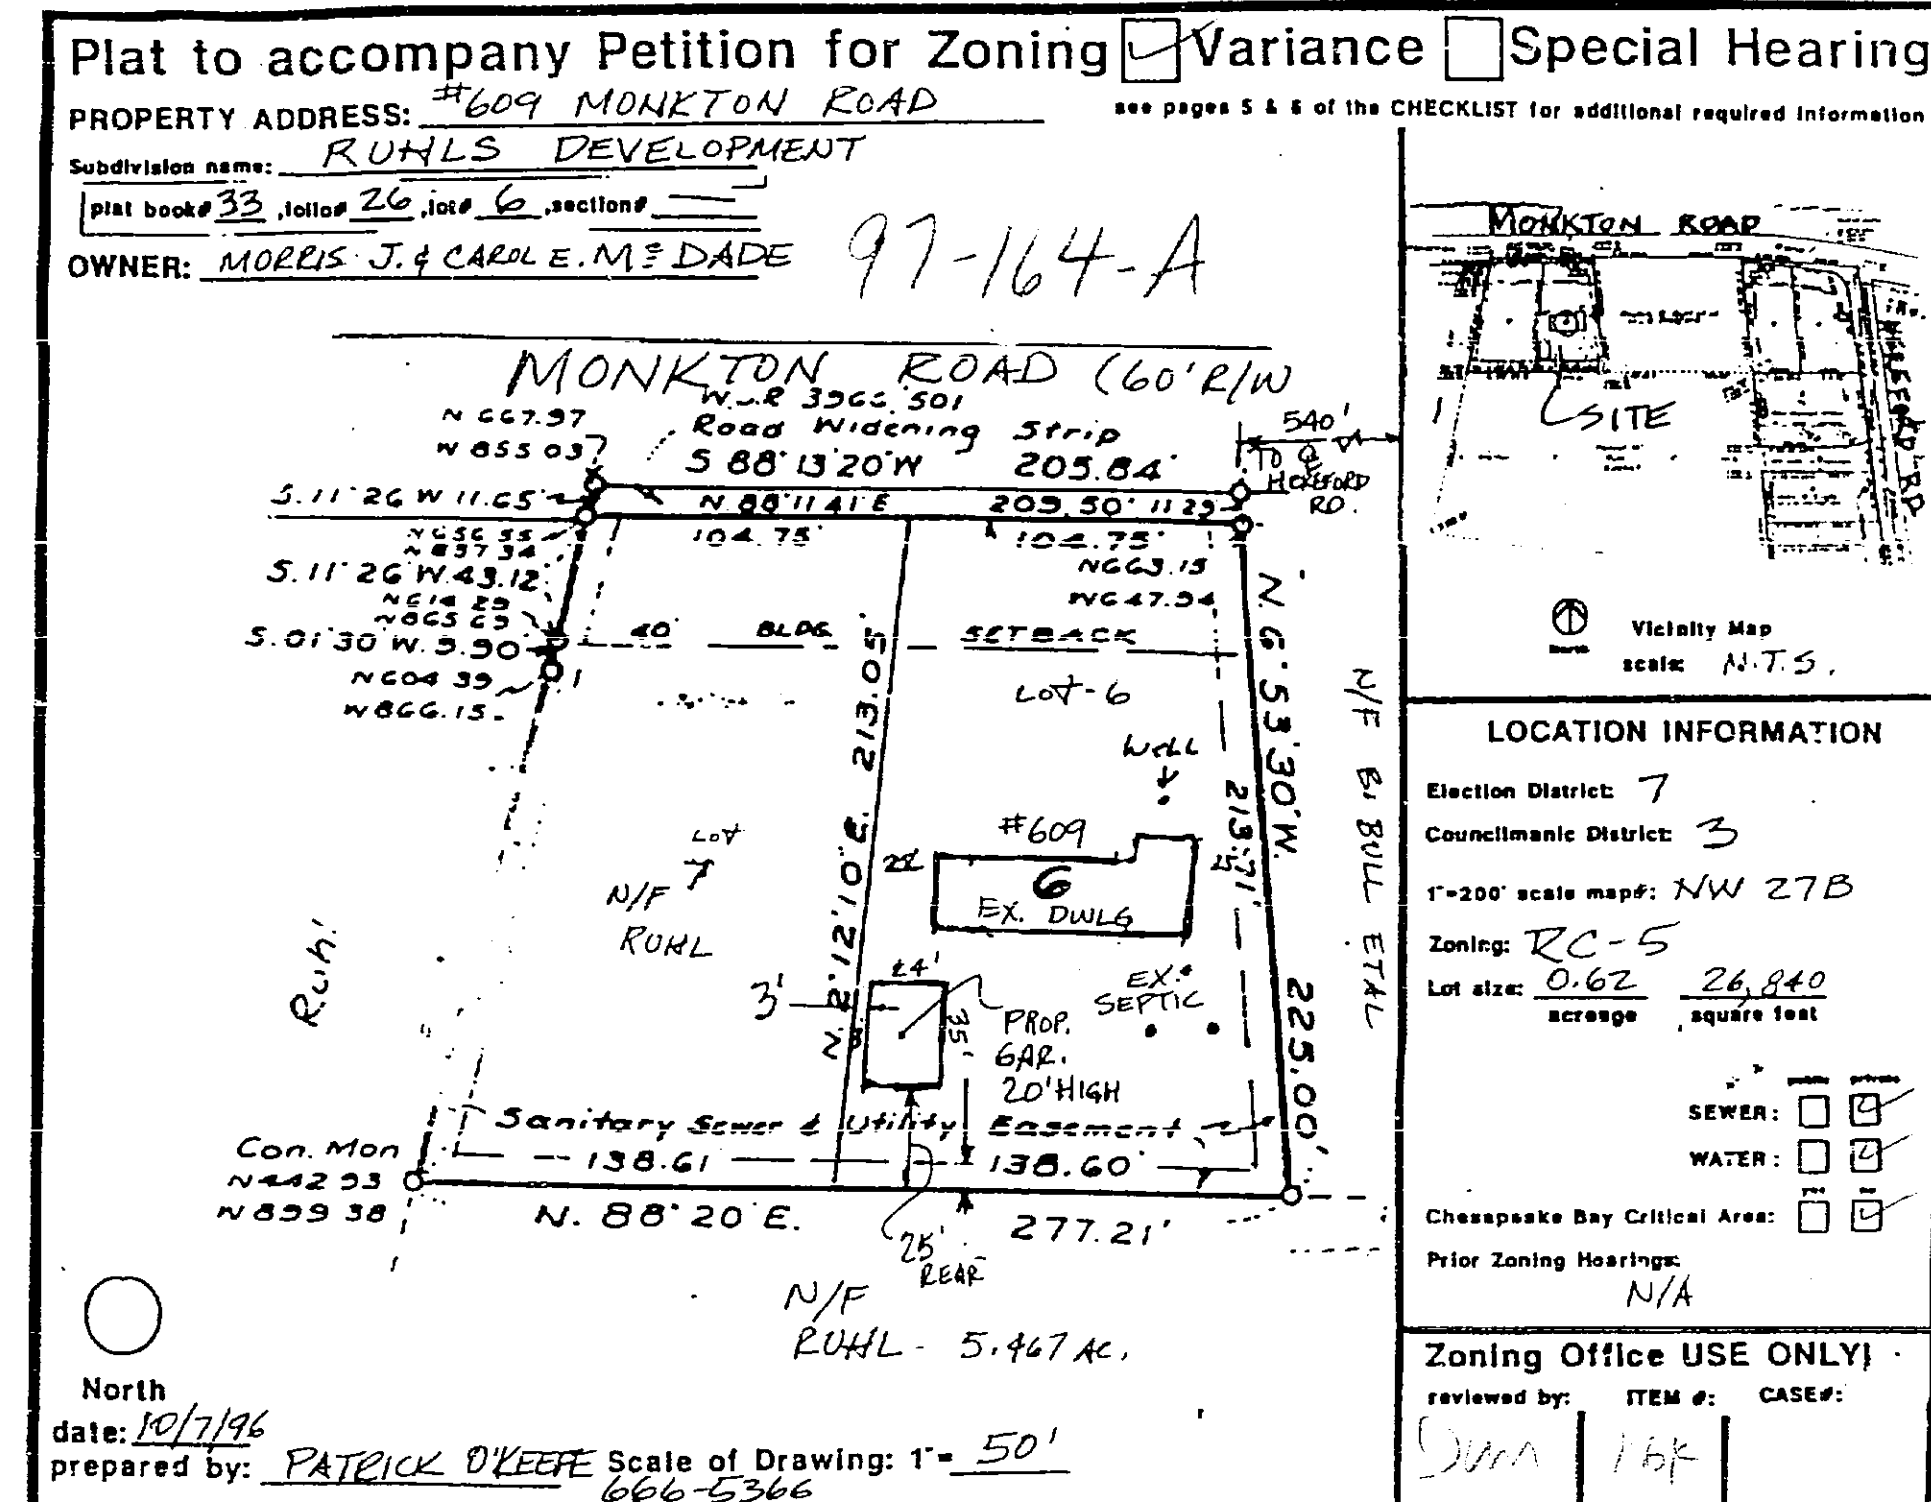 Plat to accompany Petition for Zoning Variance Special Hearing
PROPERTY ADDRESS: #609 MONKTON ROAD
see pages 5 & 6 of the CHECKLIST for additional required information
Subdivision name: RUHLS DEVELOPMENT
plat book# 33 ,folio# 26 ,lot# 6 ,section#
OWNER: MORRIS J. & CAROL E. Mc DADE
97-164-A
MONKTON ROAD (60' R/W
Road Widening Strip
N 667.97
W 855 03
S 88° 13' 20" W 205.84'
540'
TO ℄
HEREFORD
RD.
S. 11° 26 W 11.65'
N. 88° 11 41 E 209.50' 11 29
104.75'
104.75'
S. 11° 26 W. 43.12'
N663.15
W647.94
S. 01° 30 W. 9.90
40' BLDG. SETBACK
N604 39
W866.15
LOT-6
WELL
N. 6° 53' 30" W.
225.00'
213.71'
N. 2° 12' 10" E. 213.05'
N/F BI BULL ETAL
LOT
7
N/F
RUHL
#609
6
EX. DWLG
Ruhl
24'
3'
35'
PROP.
GAR.
20' HIGH
EX.
SEPTIC
Sanitary Sewer & Utility Easement
Con. Mon
N442 93
W899 38
138.61
138.60'
N. 88° 20' E.
277.21'
25'
REAR
N/F
RUHL - 5.467 AC.
North
date: 10/7/96
prepared by: PATRICK O'KEEFE Scale of Drawing: 1"= 50'
666-5366
MONKTON ROAD
HEREFORD RD
SITE
North
Vicinity Map
scale: N.T.S.
LOCATION INFORMATION
Election District: 7
Councilmanic District: 3
1"=200' scale map#: NW 27B
Zoning: RC-5
Lot size: 0.62 26,840
acreage square feet
public private
SEWER:
WATER:
yes no
Chesapeake Bay Critical Area:
Prior Zoning Hearings:
N/A
Zoning Office USE ONLY!
reviewed by: ITEM #: CASE#: